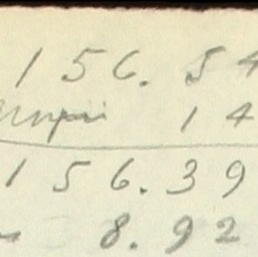 156.54
14
156.39
8.92